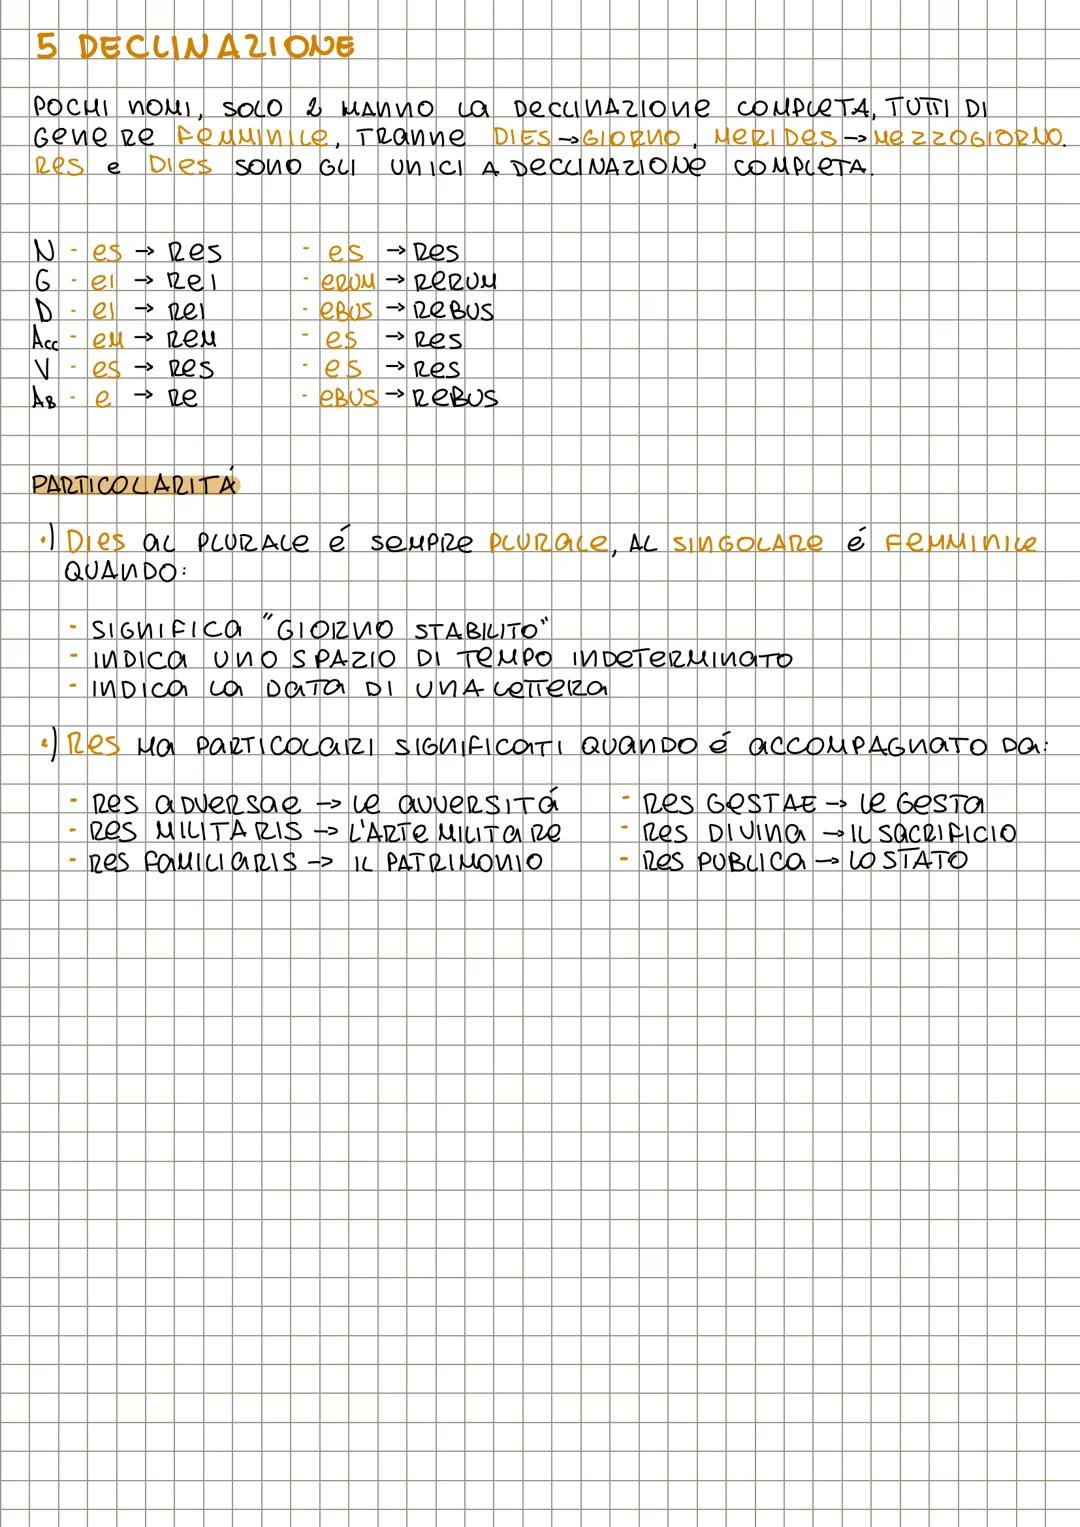 5 DECLINAZIONE
POCHI NOMI, SOLO 2 HANNO LA DECLINAZIONE COMPLETA, TUTTI DI
GENERE FEMMINILE, TRANNE DIES → GIORNO, MERIDES → MEZZOGIORNO.
RES e DIES SONO GLI UNICI A DECLINAZIONE COMPLETA.
N - es → Res - es → Res
G - ei → Rei - eRUM → ReRUM
D - ei → Rei - eBUS → ReBUS
Acc - eM → ReM - es → Res
V - es → Res - es → Res
AB - e → Re - eBUS → ReBUS
PARTICOLARITÁ
•) Dies al PLURALE é SEMPRE PLURALE, AL SINGOLARE é FEMMINILE
QUANDO:
- SIGNIFICA "GIORNO STABILITO"
- INDICA UNO SPAZIO DI TEMPO INDETERMINATO
- INDICA LA DATA DI UNA LETTERA
•) Res HA PARTICOLARI SIGNIFICATI QUANDO é ACCOMPAGNATO DA:
- Res ADVERSAE → LE AVVERSITÁ - Res GESTAE → LE GESTA
- Res MILITARIS → L'ARTE MILITARE - Res DIVINA → IL SACRIFICIO
- Res FAMILIARIS → IL PATRIMONIO - Res PUBLICA → LO STATO